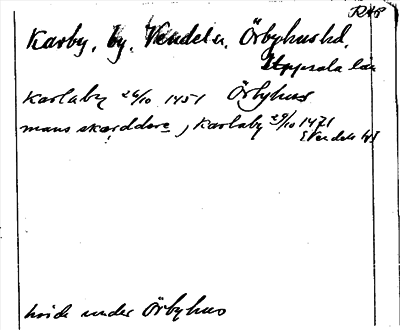 RAP
Karby, by, Vendels, Örbyhus hd,
Uppsala län
Karlaby 26/10 1451 Örbyhus
mans skærddere, Karlaby 29/10 1471
hörde under Örbyhus